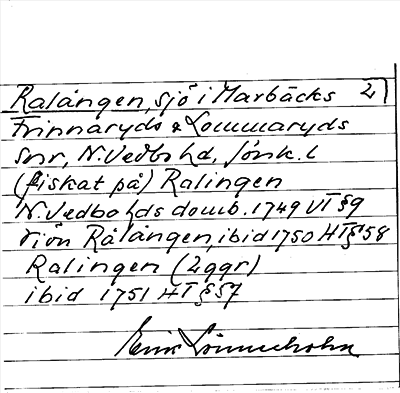 Ralången, sjö i Marbäcks 2)
Frinnaryds & Lommaryds
snr, N. Vedbo hd, Jönk. l
(fiskat på) Ralingen
N. Vedbo hds domb. 1749 VT §9
Siön Rålången, ibid 1750 HT § 58
Ralingen (2ggr)
ibid 1751 HT § 57
Erik Lönnerholm